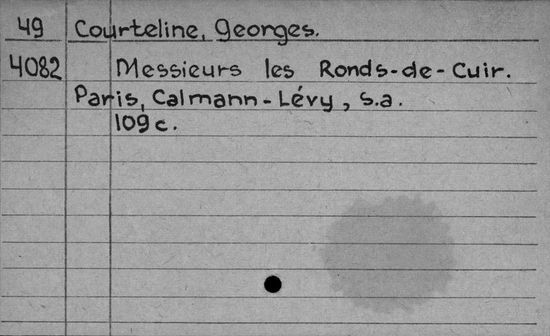 49 Courteline, Georges.
4082 Messieurs les Ronds-de-Cuir.
Paris, Calmann-Lévy, s.a.
109 c.